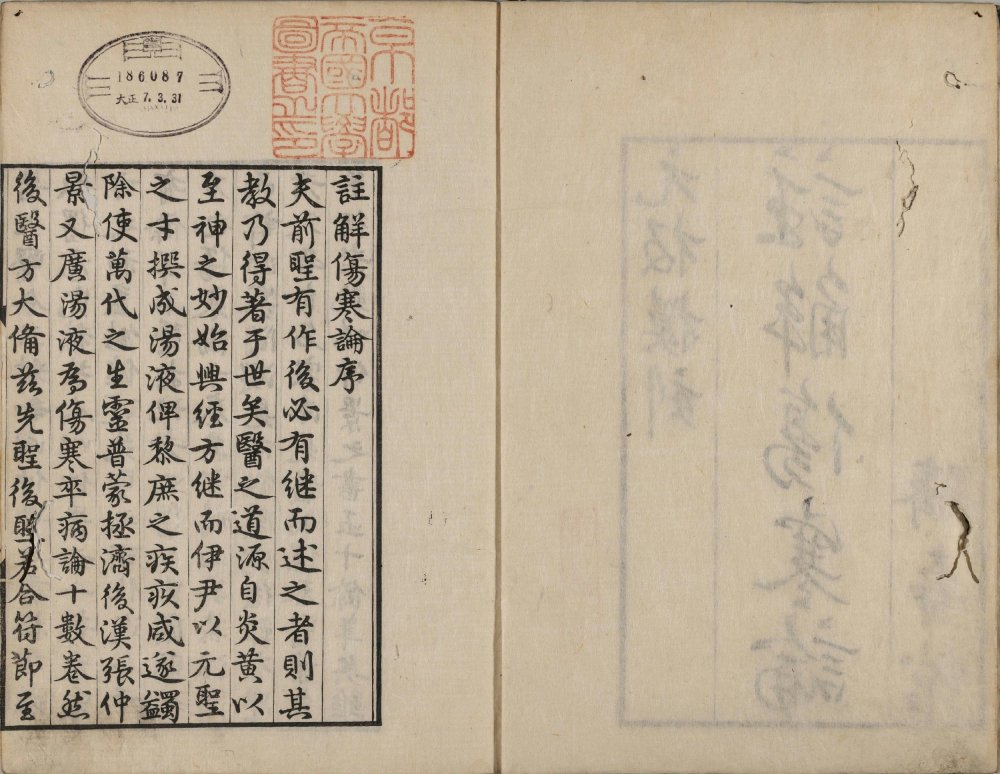 京都
帝國大學
圖書之印
186087
大正 7. 3. 31
註解傷寒論序
夫前聖有作後必有継而述之者則其
教乃得著于世矣醫之道源自炎黄以
至神之妙始興經方继而伊尹以元聖
之才撰成湯液俾黎庶之疾疢咸遂蠲
除使萬代之生靈普蒙拯濟後漢張仲
景又廣湯液為傷寒卒病論十數卷然
後醫方大備兹先聖後聖若合符節至